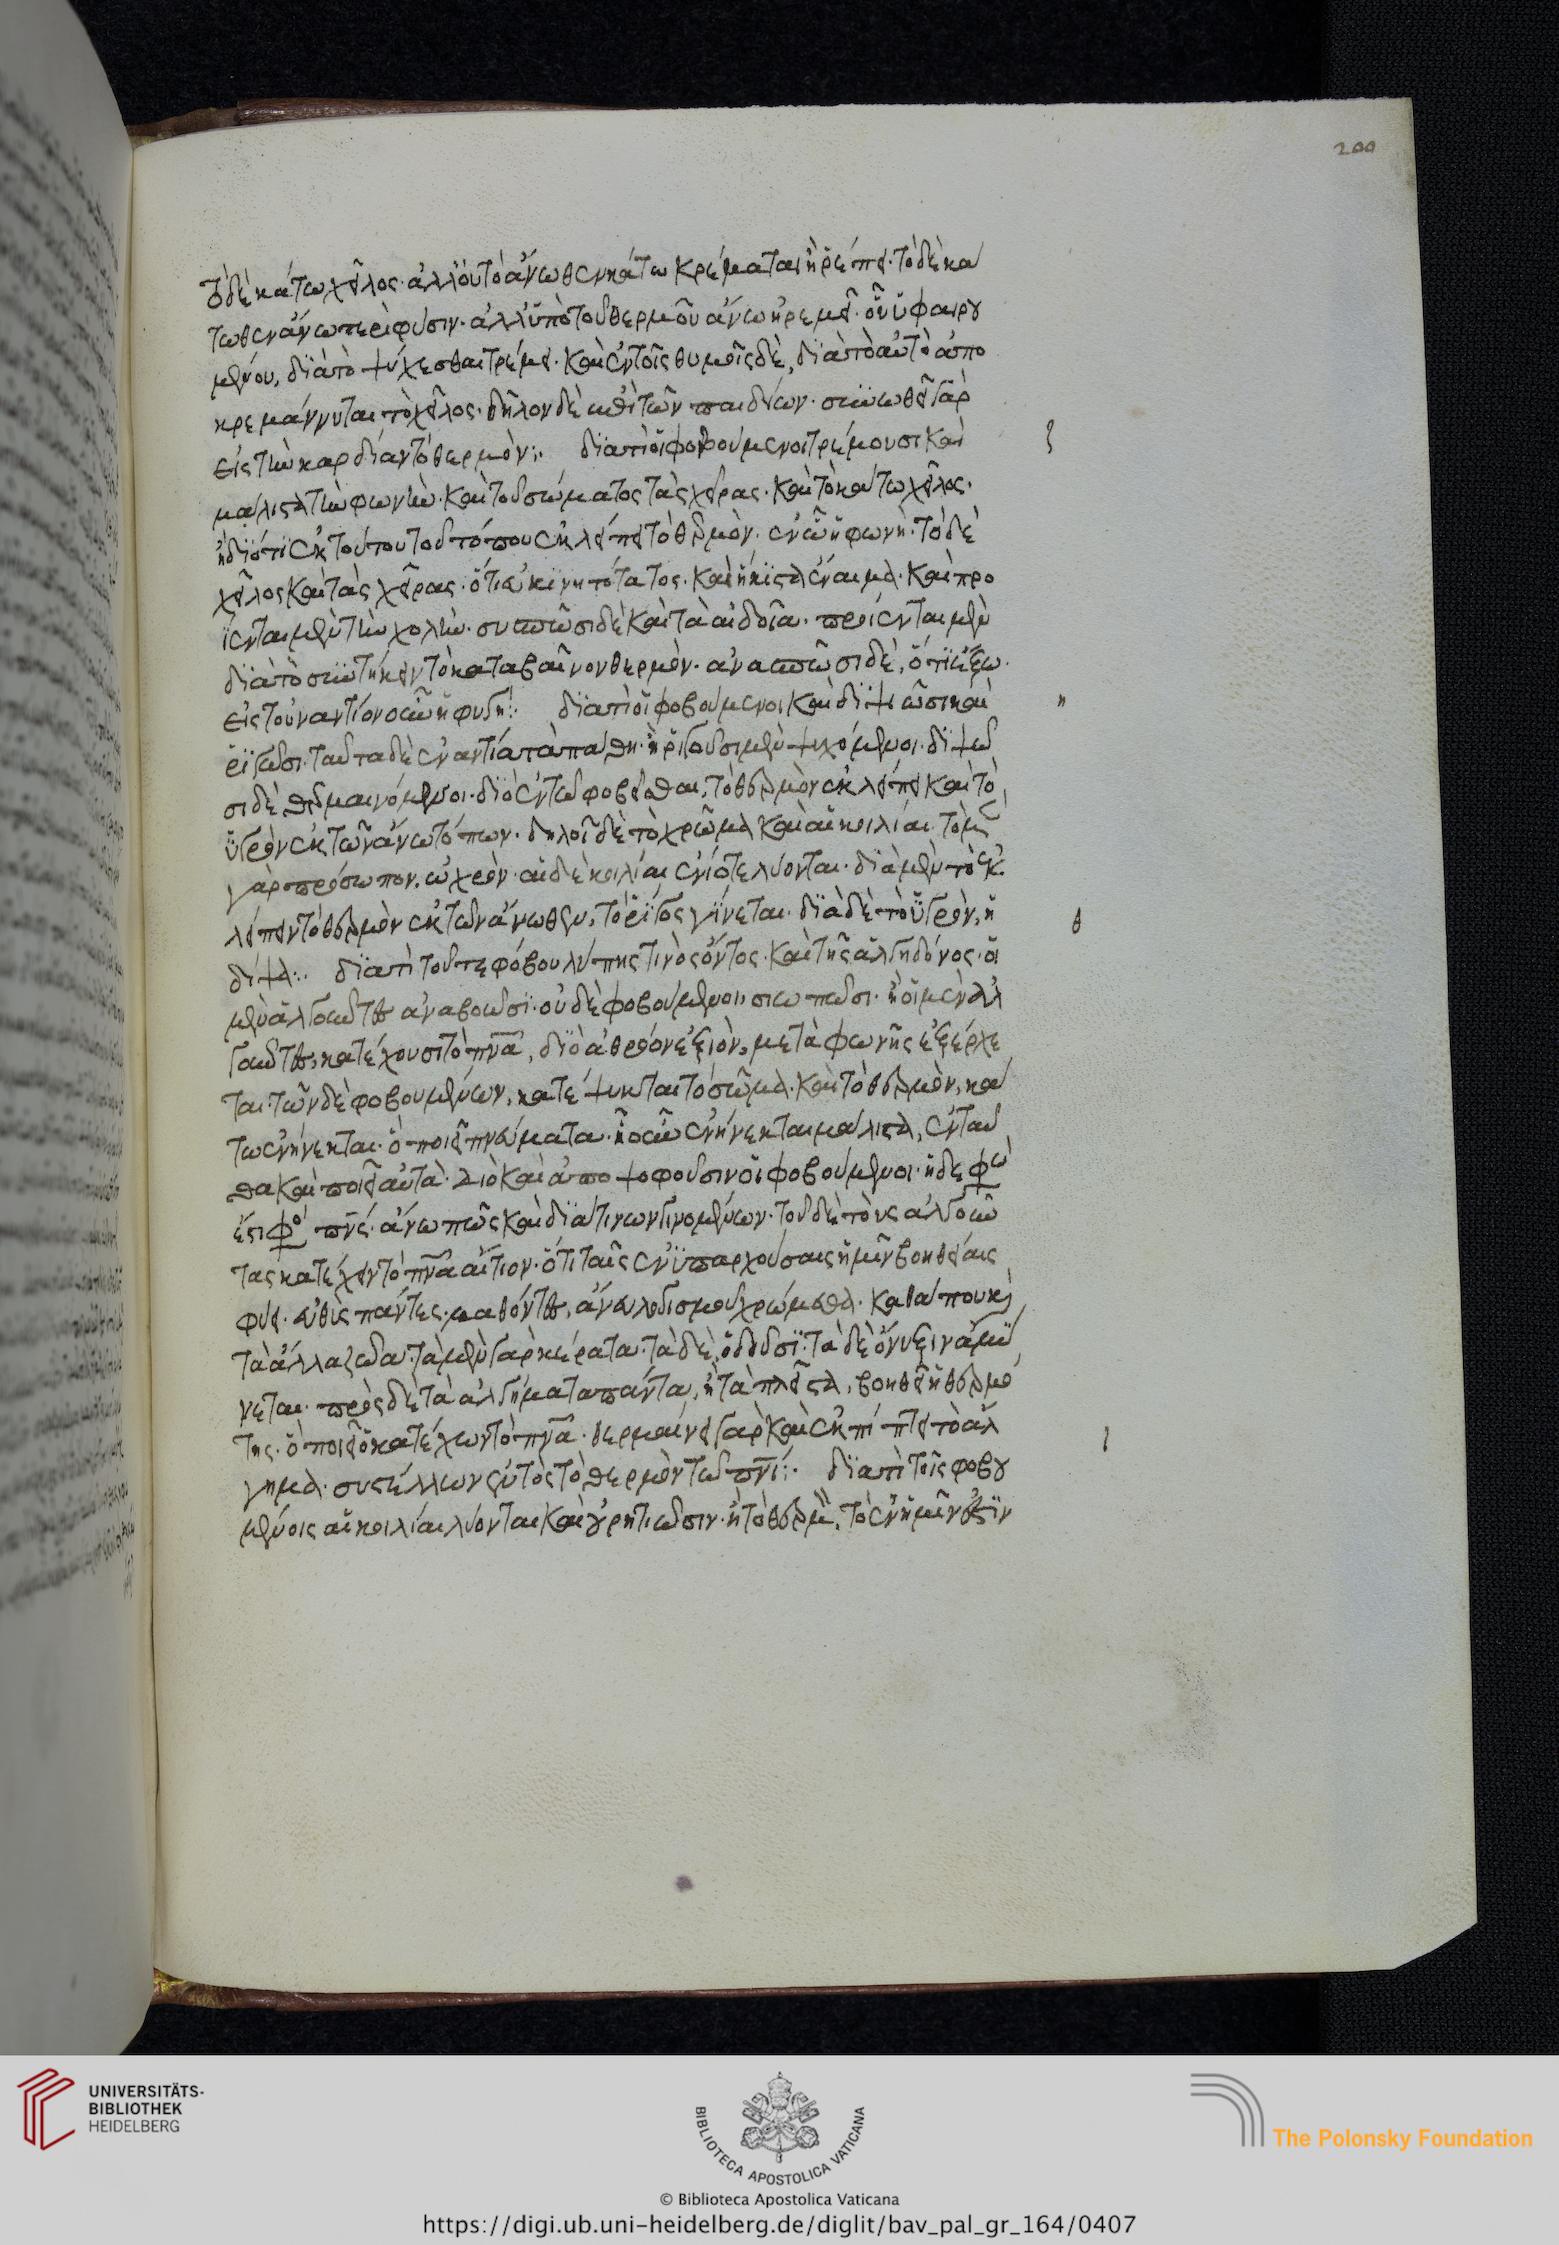 200
τὸ δὲ κάτω χεῖλος· ἀλλ' οὐ τὸ ἄνωθεν κάτω κρέμαται ἢ ῥέπει· τὸ δὲ κά
τωθεν ἄνω περὶ φύσιν· ἀλλ' ὑπὸ τοῦ θερμοῦ ἄνω ἠρεμεῖ· οὗ ὑφαιρου
μένου, διὰ τὸ ψύχεσθαι τρέμει· καὶ ἐν τοῖς θυμοῖς δὲ, διὰ τὸ αὐτὸ ἀπο
κρεμάννυται τὸ χεῖλος· δῆλον δὲ ἐπὶ τῶν παιδίων· συνωθεῖ γὰρ
εἰς τὴν καρδίαν τὸ θερμόν: διὰ τί οἱ φοβούμενοι τρέμουσι καὶ
μάλιστα τὴν φωνὴν· καὶ τοῦ σώματος τὰς χεῖρας· καὶ τὸ κάτω χεῖλος·
ἢ διότι ἐκ τούτου τοῦ τόπου ἐκλείπει τὸ θερμὸν· ἐν ᾧ ἡ φωνή· τὸ δὲ
χεῖλος καὶ τὰς χεῖρας· ὅτι εὐκινητότατος· καὶ ἥκιστα ἔναιμα· καὶ προ
ΐενται μὲν τὴν χολὴν· συσπῶσι δὲ καὶ τὰ αἰδοῖα· προΐενται μὲν
διὰ τὸ συντήκειν τὸ καταβαῖνον θερμὸν· ἀνασπῶσι δὲ, ὅτι ἔξω.
εἰς τοὐναντίον οὖν ἡ φυγή: διὰ τί οἱ φοβούμενοι καὶ διψῶσι καὶ
ῥιγῶσι· ταῦτα δὲ ἐναντία τὰ πάθη· ἢ ῥιγοῦσι μὲν ψυχόμενοι· διψῶ
σι δὲ θερμαινόμενοι· διὸ ἐν τῷ φοβεῖσθαι, τὸ θερμὸν ἐκλείπει καὶ τὸ
ὑγρὸν ἐκ τῶν ἄνω τόπων· δηλοῖ δὲ τὸ χρῶμα καὶ αἱ κοιλίαι· τὸ μὲν
γὰρ πρόσωπον, ὠχρὸν· αἱ δὲ κοιλίαι ἐνίοτε λύονται· διὰ μὲν τὸ ἐκ
λείπειν τὸ θερμὸν ἐκ τῶν ἄνωθεν, τὸ ῥῖγος γίνεται· διὰ δὲ τὸ ὑγρὸν, ἡ
δίψα: διὰ τί τοῦ τε φόβου λύπης τινὸς ὄντος· καὶ τῆς ἀλγηδόνος· οἱ
μὲν ἀλγοῦντες ἀναβοῶσι· οἱ δὲ φοβούμενοι, σιωπῶσι· ἢ οἱ μὲν ἀλ
γοῦντες, κατέχουσι τὸ πνα, διὸ ἀθρόον ἐξιὸν, μετὰ φωνῆς ἐξέρχε
ται· τῶν δὲ φοβουμένων, κατέψυκται τὸ σῶμα· καὶ τὸ θερμὸν, κά
τω ἐνήνεκται· ὃ ποιεῖ πνεύματα· ᾗ οὖν ἐνήνεκται μάλιστα, ἐνταῦ
θα καὶ ποιεῖ αὐτὰ· διὸ καὶ ἀποψοφοῦσιν οἱ φοβούμενοι· ἡ δὲ φω
ἐστι φο πνς· ἄνω πῶς καὶ διά τινων γινομένων· τοῦ δὲ τοὺς ἀλγοῦν
τας κατέχειν τὸ πνα αἴτιον· ὅτι ταῖς ἐνϋπαρχούσαις ἡμῖν βοηθείαις
φύσει· εὐθὺς πάντες· μαθόντες, ἄνευ λογισμοῦ χρώμεθα· καθά που καὶ
τὰ ἄλλα ζῷα· τὰ μὲν γὰρ κέρατα· τὰ δὲ, ὀδοῦσι· τὰ δὲ ὄνυξιν ἀμύ
νεται· πρὸς δὲ τὰ ἀλγήματα πάντα, ἢ τὰ πλεῖστα, βοηθεῖ ἡ θερμό
της· ὃ ποιεῖ ὁ κατέχων τὸ πνα· θερμαίνει γὰρ καὶ ἐκπέττει τὸ ἄλ
γημα· συστέλλων ἐντὸς τὸ θερμὸν τῷ πνι: διὰ τί τοῖς φοβου
μένοις αἱ κοιλίαι λύονται καὶ οὐρητιῶσιν· ἢ τὸ θερμὸν, τὸ ἐν ἡμῖν ἐστὶν
UNIVERSITÄTS-
BIBLIOTHEK
HEIDELBERG
BIBLIOTECA APOSTOLICA VATICANA
The Polonsky Foundation
© Biblioteca Apostolica Vaticana
https://digi.ub.uni-heidelberg.de/diglit/bav_pal_gr_164/0407